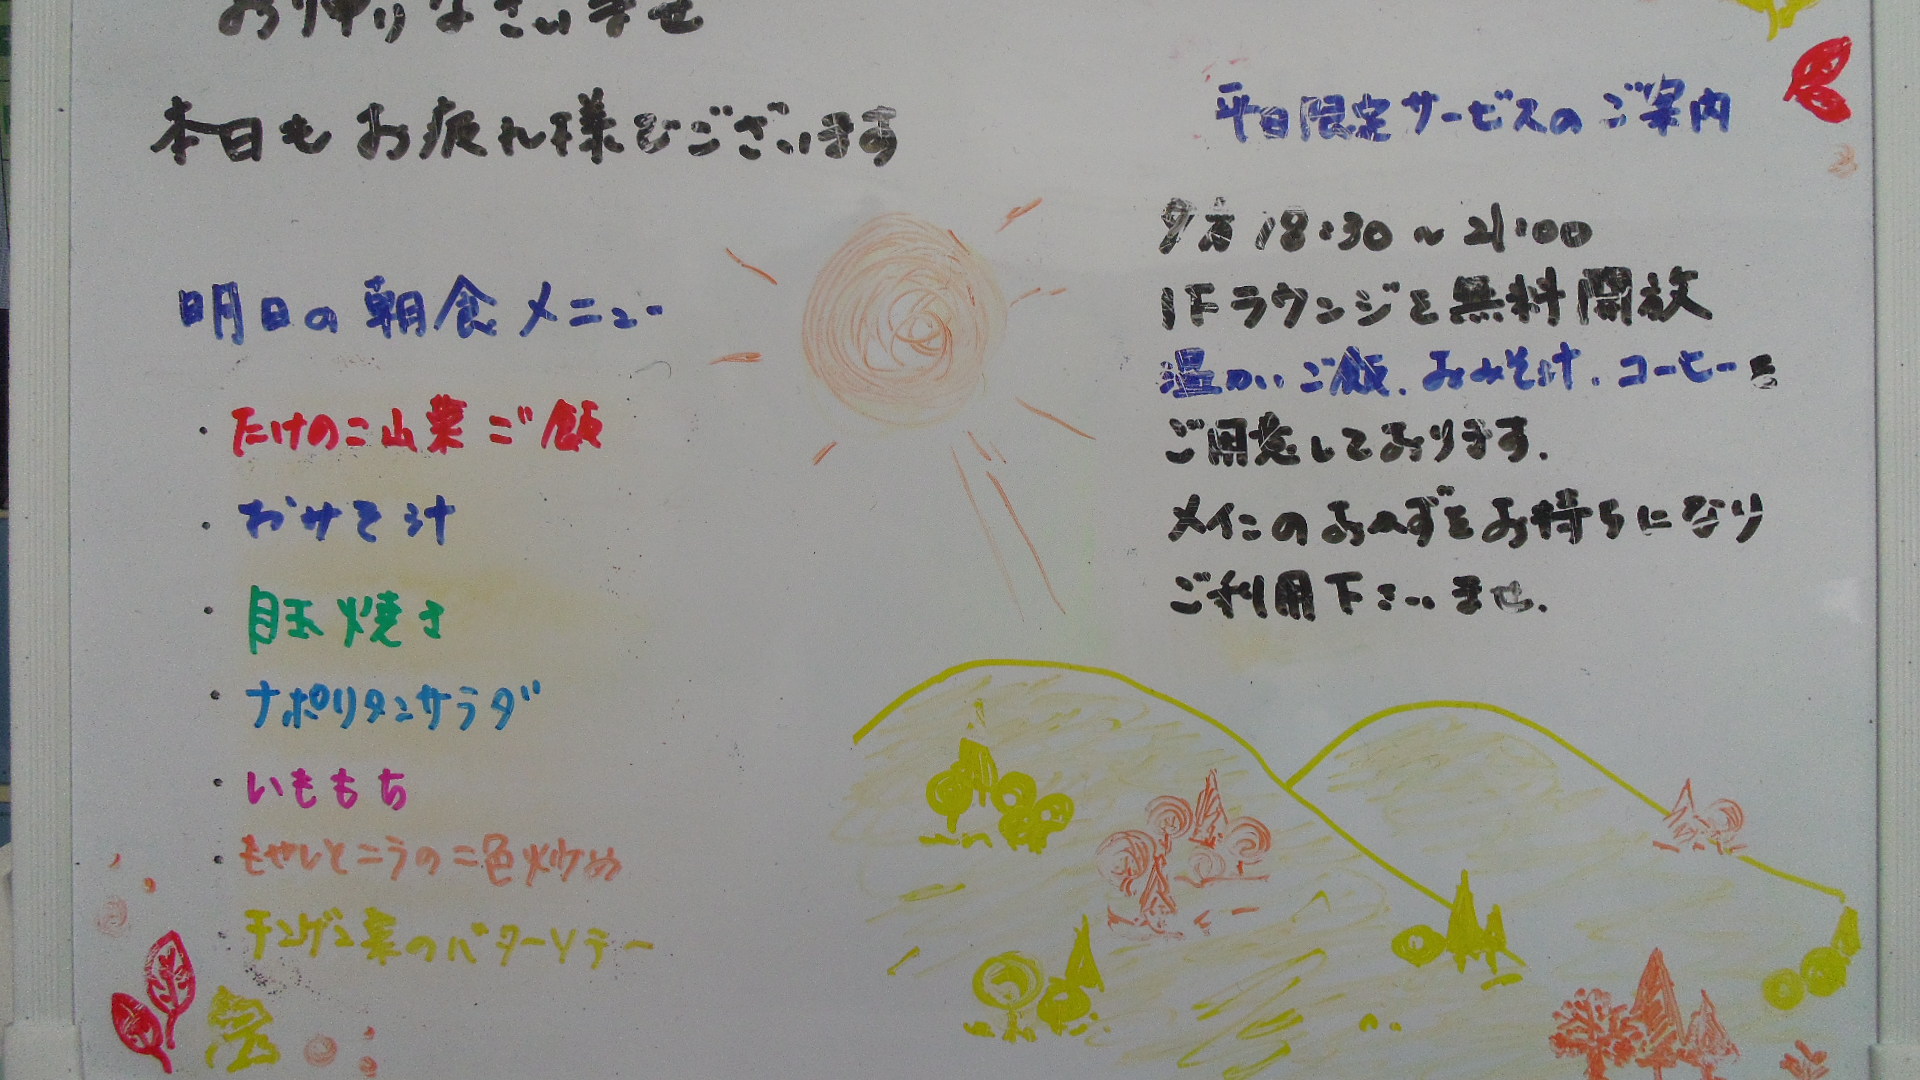 お帰りなさいませ
本日もお疲れ様でございます
明日の朝食メニュー
・たけのこ山菜ご飯
・おみそ汁
・目玉焼き
・ナポリタンサラダ
・いももち
・もやしとニラの二色炒め
・チンゲン菜のバターソテー
平日限定サービスのご案内
夕方 18:30～21:00
1Fラウンジを無料開放
温かいご飯、おみそ汁、コーヒーを
ご用意しております。
メインのおかずをお持ちになり
ご利用下さいませ。